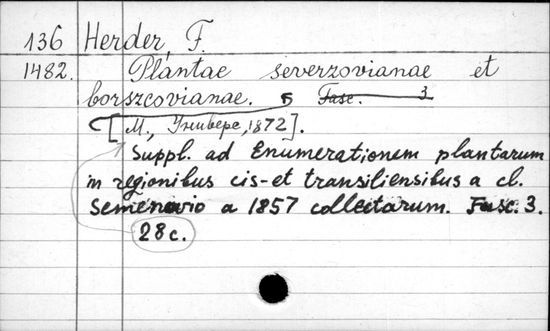 136 Herder, F.
1482. Plantae severzovianae et
borszcovianae. Fasc. 3
[М., Универс, 1872].
Suppl. ad Enumerationem plantarum
in regionibus cis- et transiliensibus a cl.
Semenovio a 1857 collectarum. Fasc. 3.
28 c.